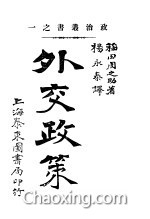 一之書叢治政
稲田周之助著
楊永泰譯
外交政策
上海泰東圖書局印行